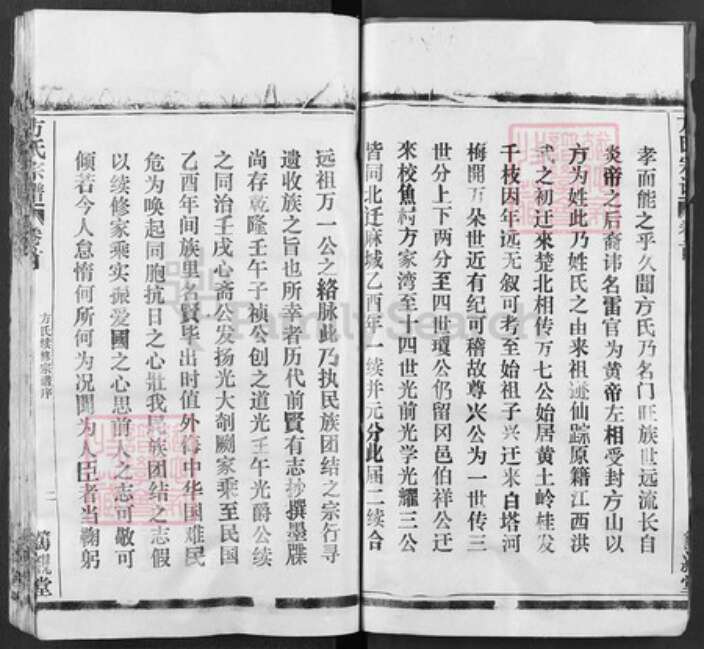 孝而能之乎久聞方氏乃名门旺族世远流长自
炎帝之后裔讳名雷官为黄帝左相受封方山以
方为姓此乃姓氏之由来祖迹仙踪原籍江西洪
武之初迁來楚北相传万七公始居黄土岭桂发
千枝因年远无叙可考至始祖子兴迁来白塔河
梅開万朵世近有纪可稽故尊兴公为一世传三
世分上下两分至四世瓊公仍留冈邑伯祥公迁
來校焦树方家湾至十四世光前光学光耀三公
皆同北迁麻城乙酉年一续并元分此届二续合
远祖万一公之絡脉此乃执民族团结之宗行寻
遗收族之旨也所幸者历代前賢有志抄撰墨牒
尚存乾隆壬午子祯公创之道光壬午光爵公续
之同治壬戌心斋公发扬光大剞劂家乘至民国
乙酉年间族里名賢毕出时值外侮中华国难民
危为唤起同胞抗日之心壮我民族团结之志假
以续修家乘实振爱國之心思前人之志可敬可
倾若今人怠惰何所何为况聞为人臣者当鞠躬
方氏宗谱
卷首
方氏续修宗谱序
二
堂